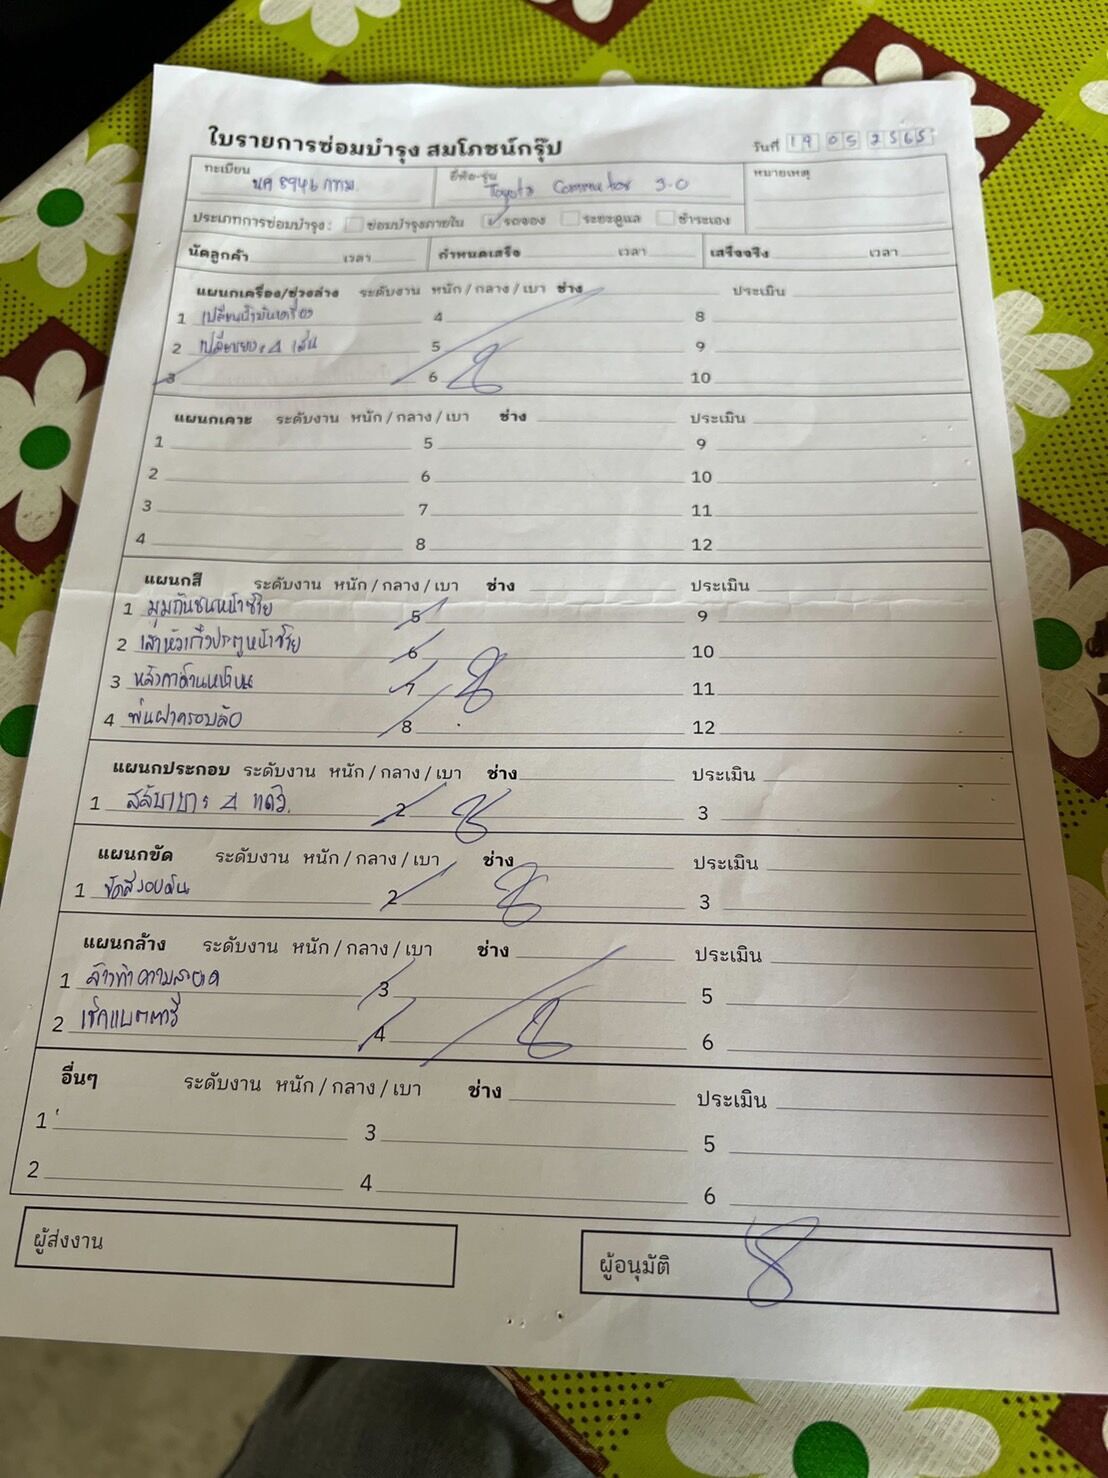 ใบรายการซ่อมบำรุง สมโภชน์กรุ๊ป
วันที่ 19 05 2565
ทะเบียน นค 8946 กทม.
ยี่ห้อ-รุ่น Toyota Commuter 3.0
หมายเหตุ
ประเภทการซ่อมบำรุง: ซ่อมบำรุงภายใน ✓ รถจอง ระยะดูแล ชำระเอง
นัดลูกค้า เวลา กำหนดเสร็จ เวลา เสร็จจริง เวลา
แผนกเครื่อง/ช่วงล่าง ระดับงาน หนัก / กลาง / เบา ช่าง ประเมิน
1 เปลี่ยนน้ำมันเครื่อง 4 8
2 เปลี่ยนยาง 4 เส้น 5 9
3 6 10
แผนกเคาะ ระดับงาน หนัก / กลาง / เบา ช่าง ประเมิน
1 5 9
2 6 10
3 7 11
4 8 12
แผนกสี ระดับงาน หนัก / กลาง / เบา ช่าง ประเมิน
1 มุมกันชนหน้าซ้าย 5 9
2 เสาหัวเก๋งประตูหน้าซ้าย 6 10
3 หลังคาด้านหน้าบน 7 11
4 พ่นฝาครอบล้อ 8 12
แผนกประกอบ ระดับงาน หนัก / กลาง / เบา ช่าง ประเมิน
1 สลับเบาะ 4 แถว. 2 3
แผนกขัด ระดับงาน หนัก / กลาง / เบา ช่าง ประเมิน
1 ขัดสีรอบคัน 2 3
แผนกล้าง ระดับงาน หนัก / กลาง / เบา ช่าง ประเมิน
1 ล้างทำความสะอาด 3 5
2 เช็คแบตตารี่ 4 6
อื่นๆ ระดับงาน หนัก / กลาง / เบา ช่าง ประเมิน
1 3 5
2 4 6
ผู้ส่งงาน
ผู้อนุมัติ